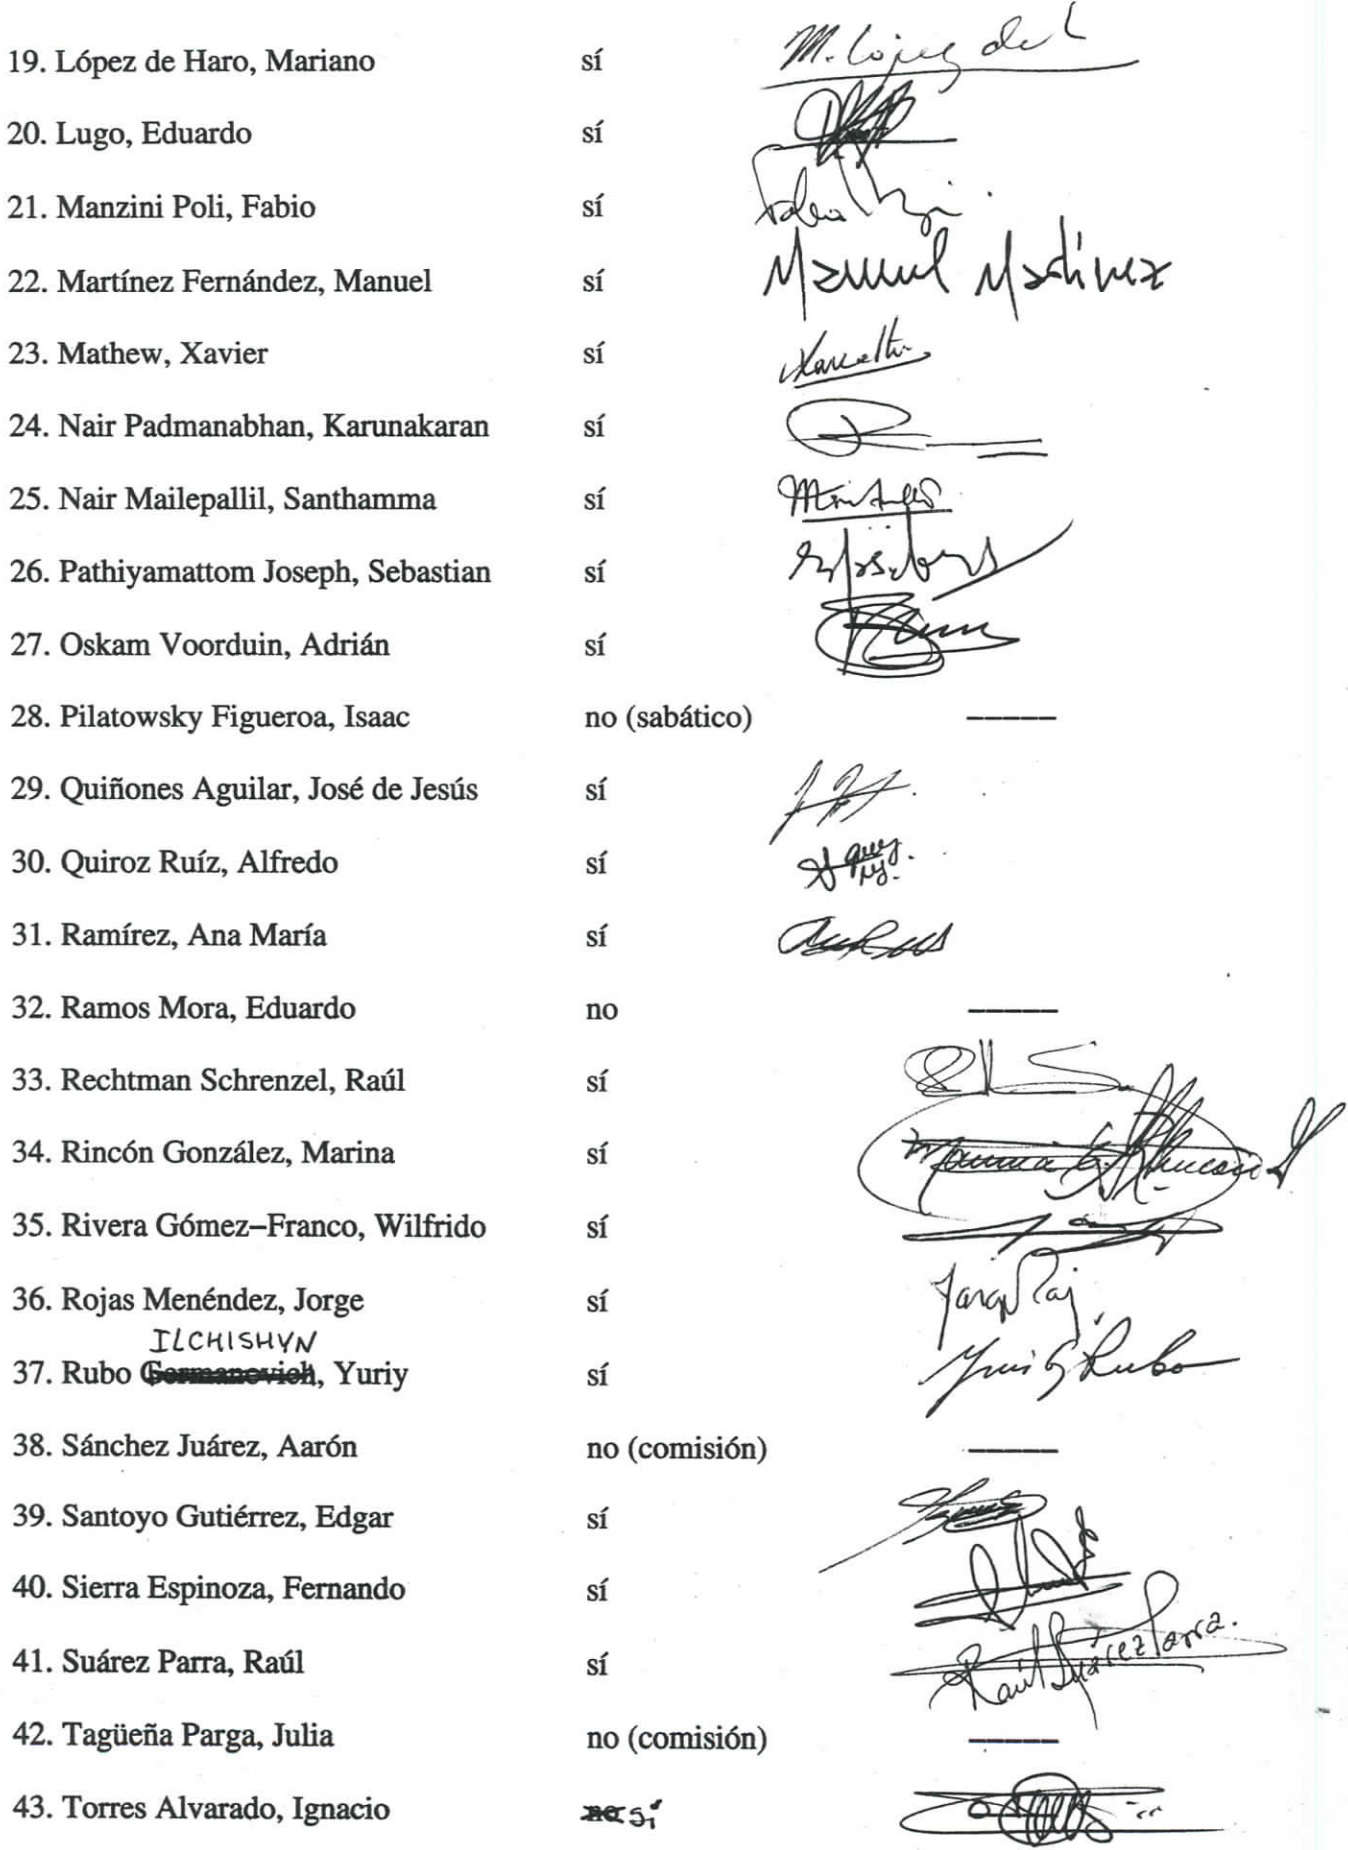 19. López de Haro, Mariano sí M. López de
20. Lugo, Eduardo sí
21. Manzini Poli, Fabio sí Fabio
22. Martínez Fernández, Manuel sí Manuel Martínez
23. Mathew, Xavier sí
24. Nair Padmanabhan, Karunakaran sí
25. Nair Mailepallil, Santhamma sí
26. Pathiyamattom Joseph, Sebastian sí
27. Oskam Voorduin, Adrián sí
28. Pilatowsky Figueroa, Isaac no (sabático) -----
29. Quiñones Aguilar, José de Jesús sí
30. Quiroz Ruíz, Alfredo sí
31. Ramírez, Ana María sí
32. Ramos Mora, Eduardo no -----
33. Rechtman Schrenzel, Raúl sí
34. Rincón González, Marina sí Marina
35. Rivera Gómez–Franco, Wilfrido sí
36. Rojas Menéndez, Jorge sí
ILCHISHYN
37. Rubo Germanovich, Yuriy sí Yuri G Rubo
38. Sánchez Juárez, Aarón no (comisión) -----
39. Santoyo Gutiérrez, Edgar sí
40. Sierra Espinoza, Fernando sí
41. Suárez Parra, Raúl sí Raúl Suárez Parra.
42. Tagüeña Parga, Julia no (comisión) -----
43. Torres Alvarado, Ignacio no sí